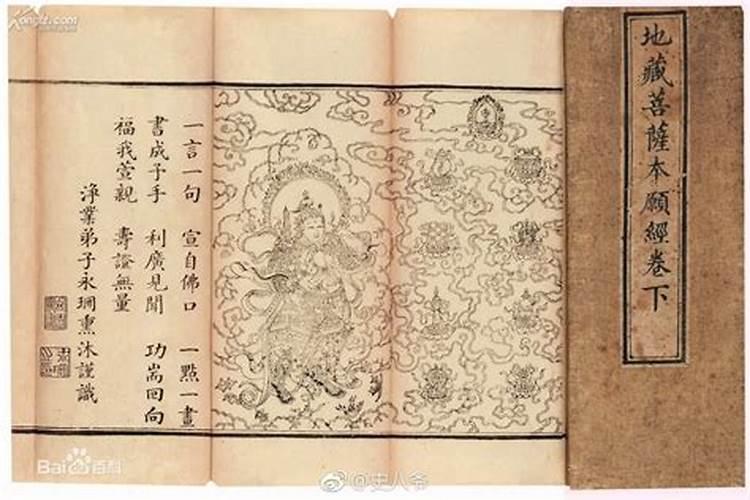 地藏菩薩本願經卷下
一言一句 宣自佛口 一點一畫
書成予手 利廣見聞 功耑回向
福我萱親 壽證無量
淨業弟子永 熏沐謹識
Kongfz.com
Bai百科
@史人爷